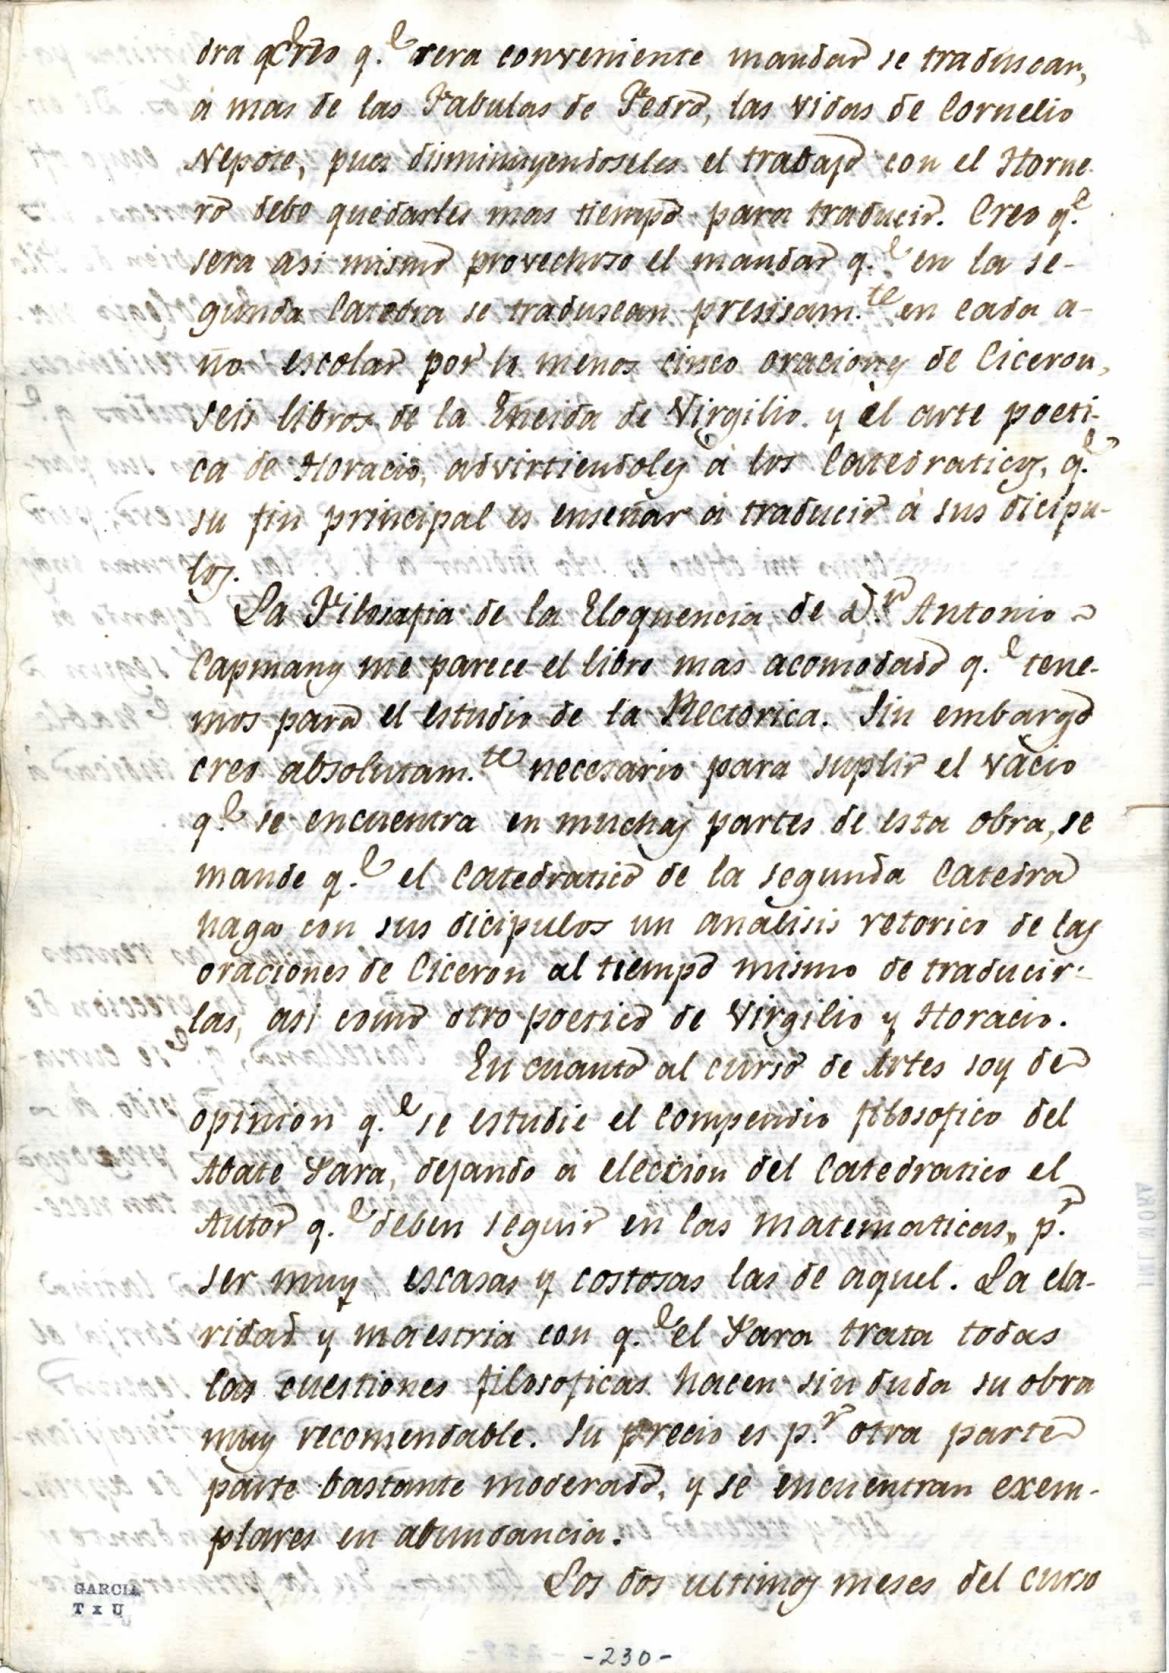 dra qCreo q.e sera conveniente mandar se traduscan,
á mas de las Fabulas de Fedro, las vidas de Cornelio
Nepote, pues disminuyendoseles el trabajo con el Horne
ro debe quedarles mas tiempo para traducir. Creo q.e
sera asi mismo provechoso el mandar q.e en la se-
gunda Catedra se traduscan presisam.te en cada a-
ño escolar por lo menos cinco oraciones de Ciceron,
seis libros de la Eneida de Virgilio y el arte poeti-
ca de Horacio, advirtiendoles á los Catedraticos, q.e
su fin principal es enseñar á traducir á sus dicipu-
los.
La Filosofia de la Eloquencia de D.n Antonio
Capmany me parece el libro mas acomodado q.e tene-
mos para el estudio de la Rectorica. Sin embargo
creo absolutam.te necesario para suplir el vacio
q.e se encuentra en muchas partes de esta obra, se
mande q.e el Catedratico de la segunda Catedra
haga con sus dicipulos un analisis retorico de las
oraciones de Ciceron al tiempo mismo de traducir-
las, asi como otro poetico de Virgilio y Horacio.
En cuanto al curso de Artes soy de
opinion q.e se estudie el compendio filosofico del
Abate Para, dejando a eleccion del Catedratico el
Autor q.e deben seguir en las matematicas, p.r
ser muy escasas y costosas las de aquel. La cla-
ridad y maestria con q.e el Para trata todas
las cuestiones filosoficas hacen sin duda su obra
muy recomendable. Su precio es p.r otra parte
parte bastante moderado, y se encuentran exem-
plares en abundancia.
Los dos ultimos meses del curso
GARCIA
T x U
-230-